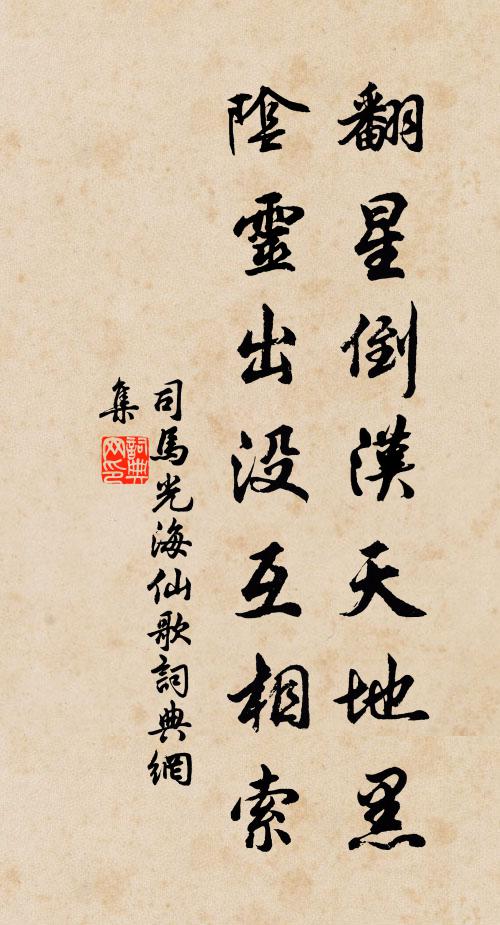 翻星倒漢天地黑
陰靈出没互相索
司馬光海仙歌詞典網
集
詞典網印